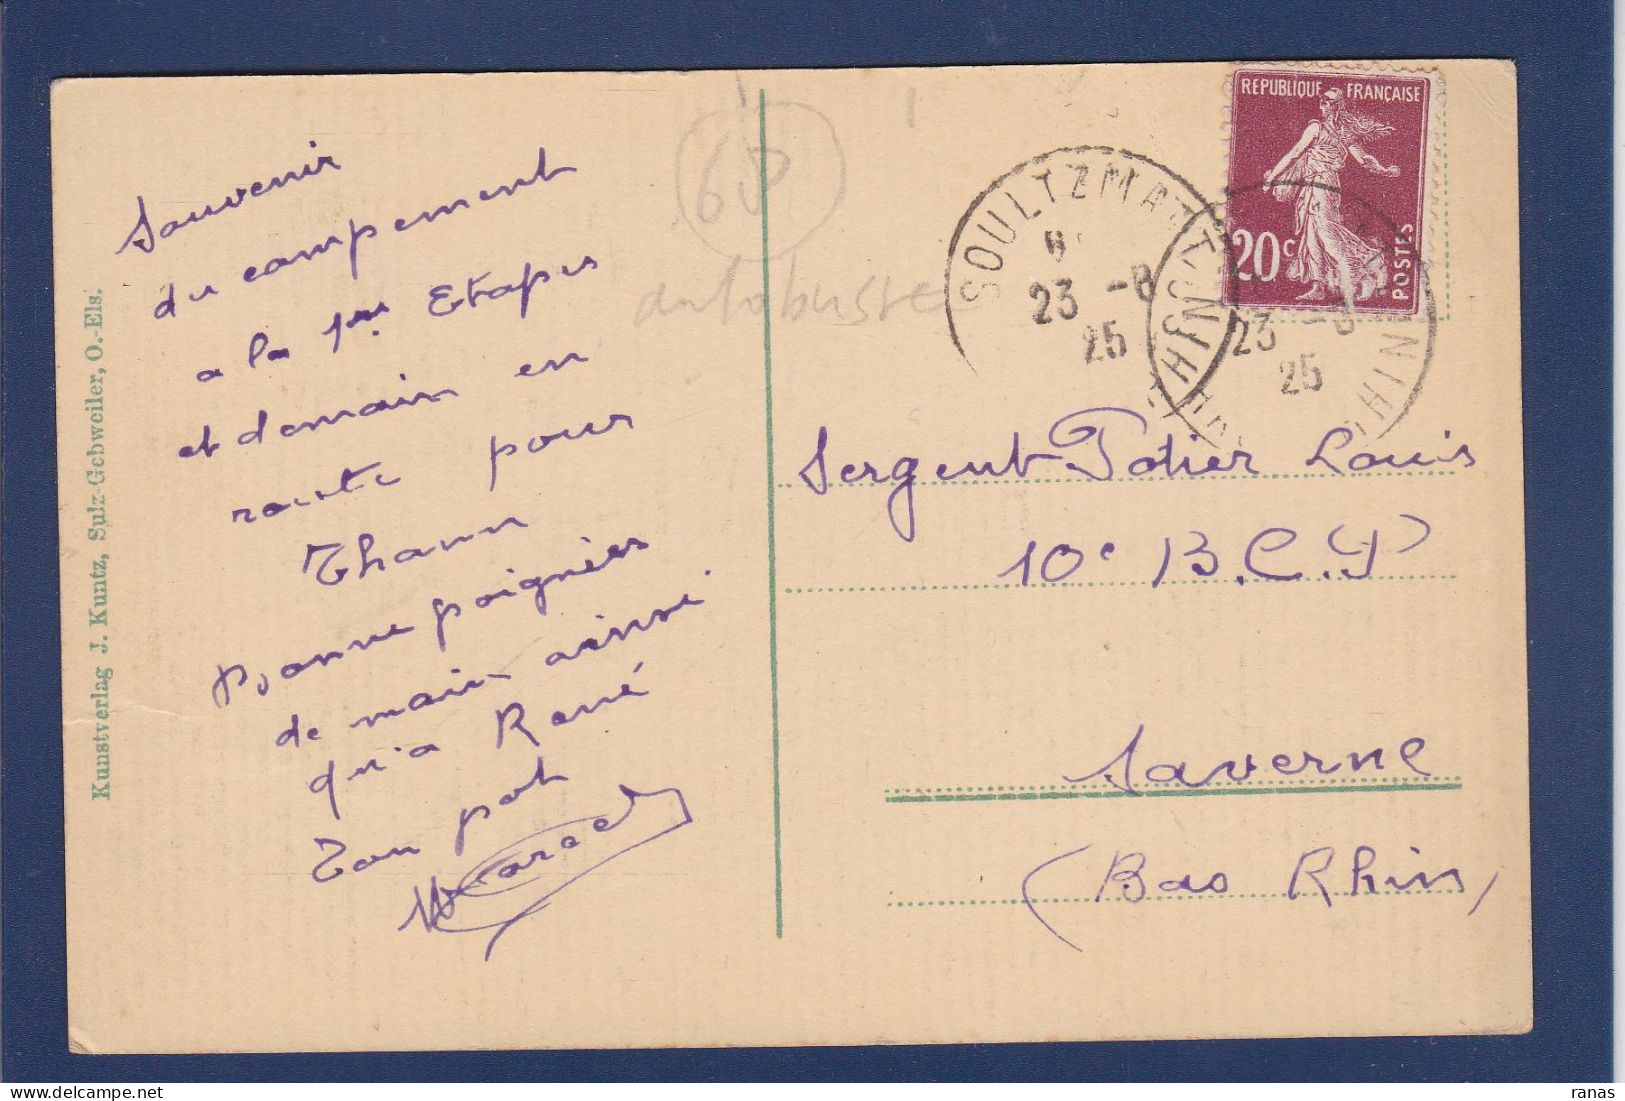 Souvenir
du campement
a la 1ere Etapes
et demain en
route pour
Thann
Bonne poignées
de main ainsi
qu'a René
Ton pot
68
autobus
REPUBLIQUE FRANÇAISE
20c
POSTES
SOULTZMATT
23 -8
25
23 -8
25
Sergent Potier Louis
10e B.C.P
Saverne
(Bas Rhin)
Kunstverlag J. Kuntz, Sulz-Gebweiler, O.-Els.
ranas